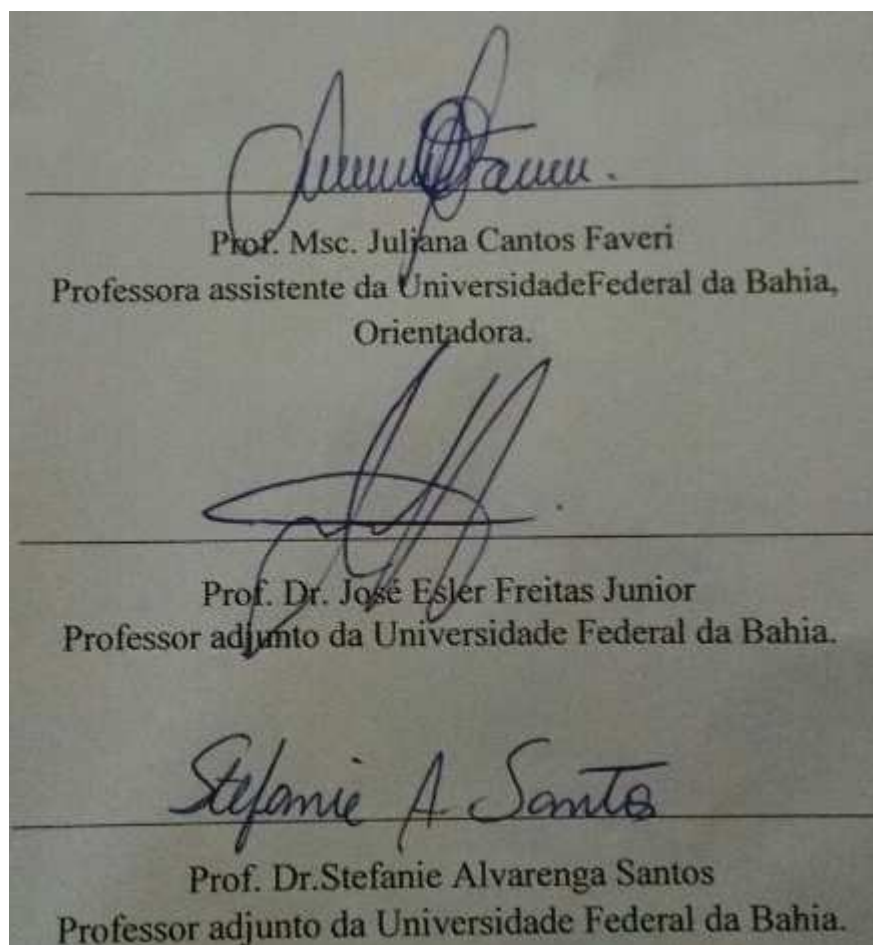 Prof. Msc. Juliana Cantos Faveri
Professora assistente da UniversidadeFederal da Bahia,
Orientadora.
Prof. Dr. José Esler Freitas Junior
Professor adjunto da Universidade Federal da Bahia.
Stefanie A. Santos
Prof. Dr.Stefanie Alvarenga Santos
Professor adjunto da Universidade Federal da Bahia.